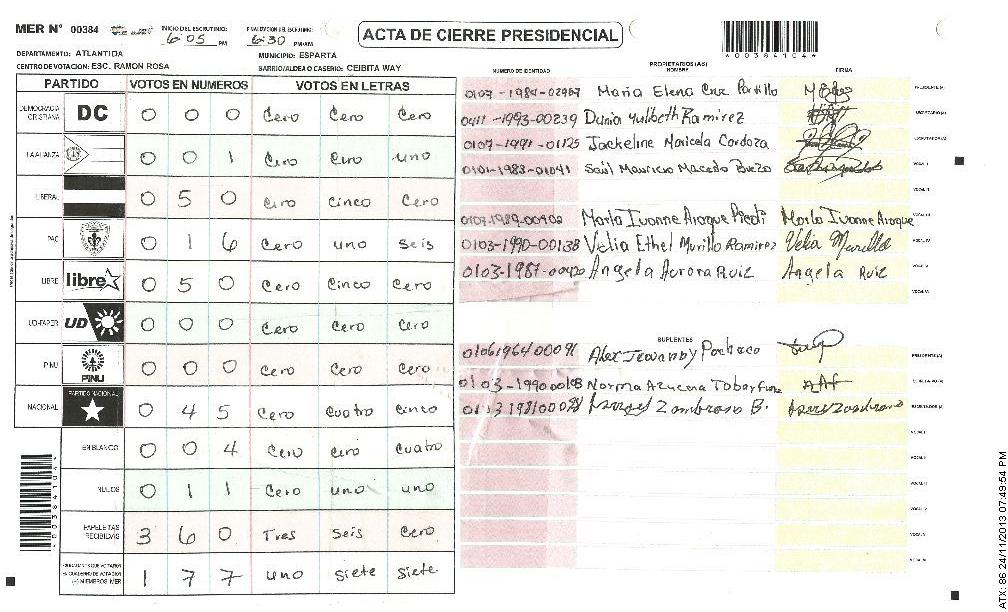 MER Nº 00384
INICIO DEL ESCRUTINIO: 6:05 PM
FINALIZACION DEL ESCRUTINIO: 6:30 PM-AM
ACTA DE CIERRE PRESIDENCIAL
*0038410 4*
DEPARTAMENTO: ATLANTIDA
MUNICIPIO: ESPARTA
CENTRO DE VOTACION: ESC. RAMON ROSA
BARRIO/ALDEA O CASERIO: CEIBITA WAY
PARTIDO VOTOS EN NUMEROS VOTOS EN LETRAS
DEMOCRACIA CRISTIANA DC 0 0 0 Cero Cero Cero
LA ALIANZA 0 0 1 Cero Cero uno
LIBERAL 0 5 0 Cero Cinco Cero
PAC 0 1 6 Cero uno seis
LIBRE libre 0 5 0 Cero Cinco Cero
UD-FAPER UD 0 0 0 Cero Cero Cero
PINU PINU 0 0 0 Cero Cero Cero
NACIONAL PARTIDO NACIONAL 0 4 5 Cero Cuatro Cinco
EN BLANCO 0 0 4 Cero Cero Cuatro
NULOS 0 1 1 Cero uno uno
PAPELETAS RECIBIDAS 3 6 0 Tres Seis Cero
(+) MIEMBROS MER 1 7 7 uno siete siete
PROPIETARIOS (AS)
NUMERO DE IDENTIDAD NOMBRE FIRMA
Maria Elena Cruz Portillo PRESIDENTE (A)
0411-1993-00239 Dunia Yulibeth Ramirez SECRETARIO (A)
0107-1991-01125 Jackeline Maricela Cardoza ESCRUTADOR (A)
0101-1983-01041 Saúl Mauricio Macedo VOCAL I
VOCAL II
Marla Ivonne Araque Marla Ivonne Araque VOCAL III
0103-1990-00138 Velia Ethel Murillo Ramirez Velia Murillo VOCAL IV
0103-1987-00420 Angela Aurora Ruiz Angela Ruiz VOCAL V
VOCAL VI
SUPLENTES
0106196400091 Pacheco PRESIDENTE (A)
Norma Azucena Tobar SECRETARIO (A)
Zambrano B. ESCRUTADOR (A)
VOCAL I
VOCAL II
VOCAL III
VOCAL IV
VOCAL V
VOCAL VI
00384104
ATX: 86 24/11/2013 07:49:54 PM